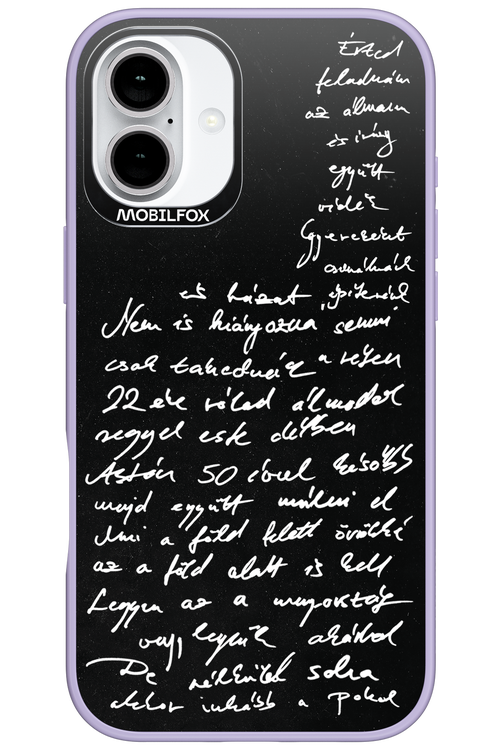 MOBILFOX
Érted
feladnám
az álmaim
és így
együtt
Gyereket
csinálnánk
és házat építenénk
Nem is hiányozna semmi
csak takednék a helyem
22 éve rólad álmodok
reggel este délben
Aztán 50 évvel később
majd együtt múlni el
Ami a föld felett örökké
az a föld alatt is kell
Legyen az a mennyország
vagy legyünk akárhol
De nélküled soha
akkor inkább a pokol